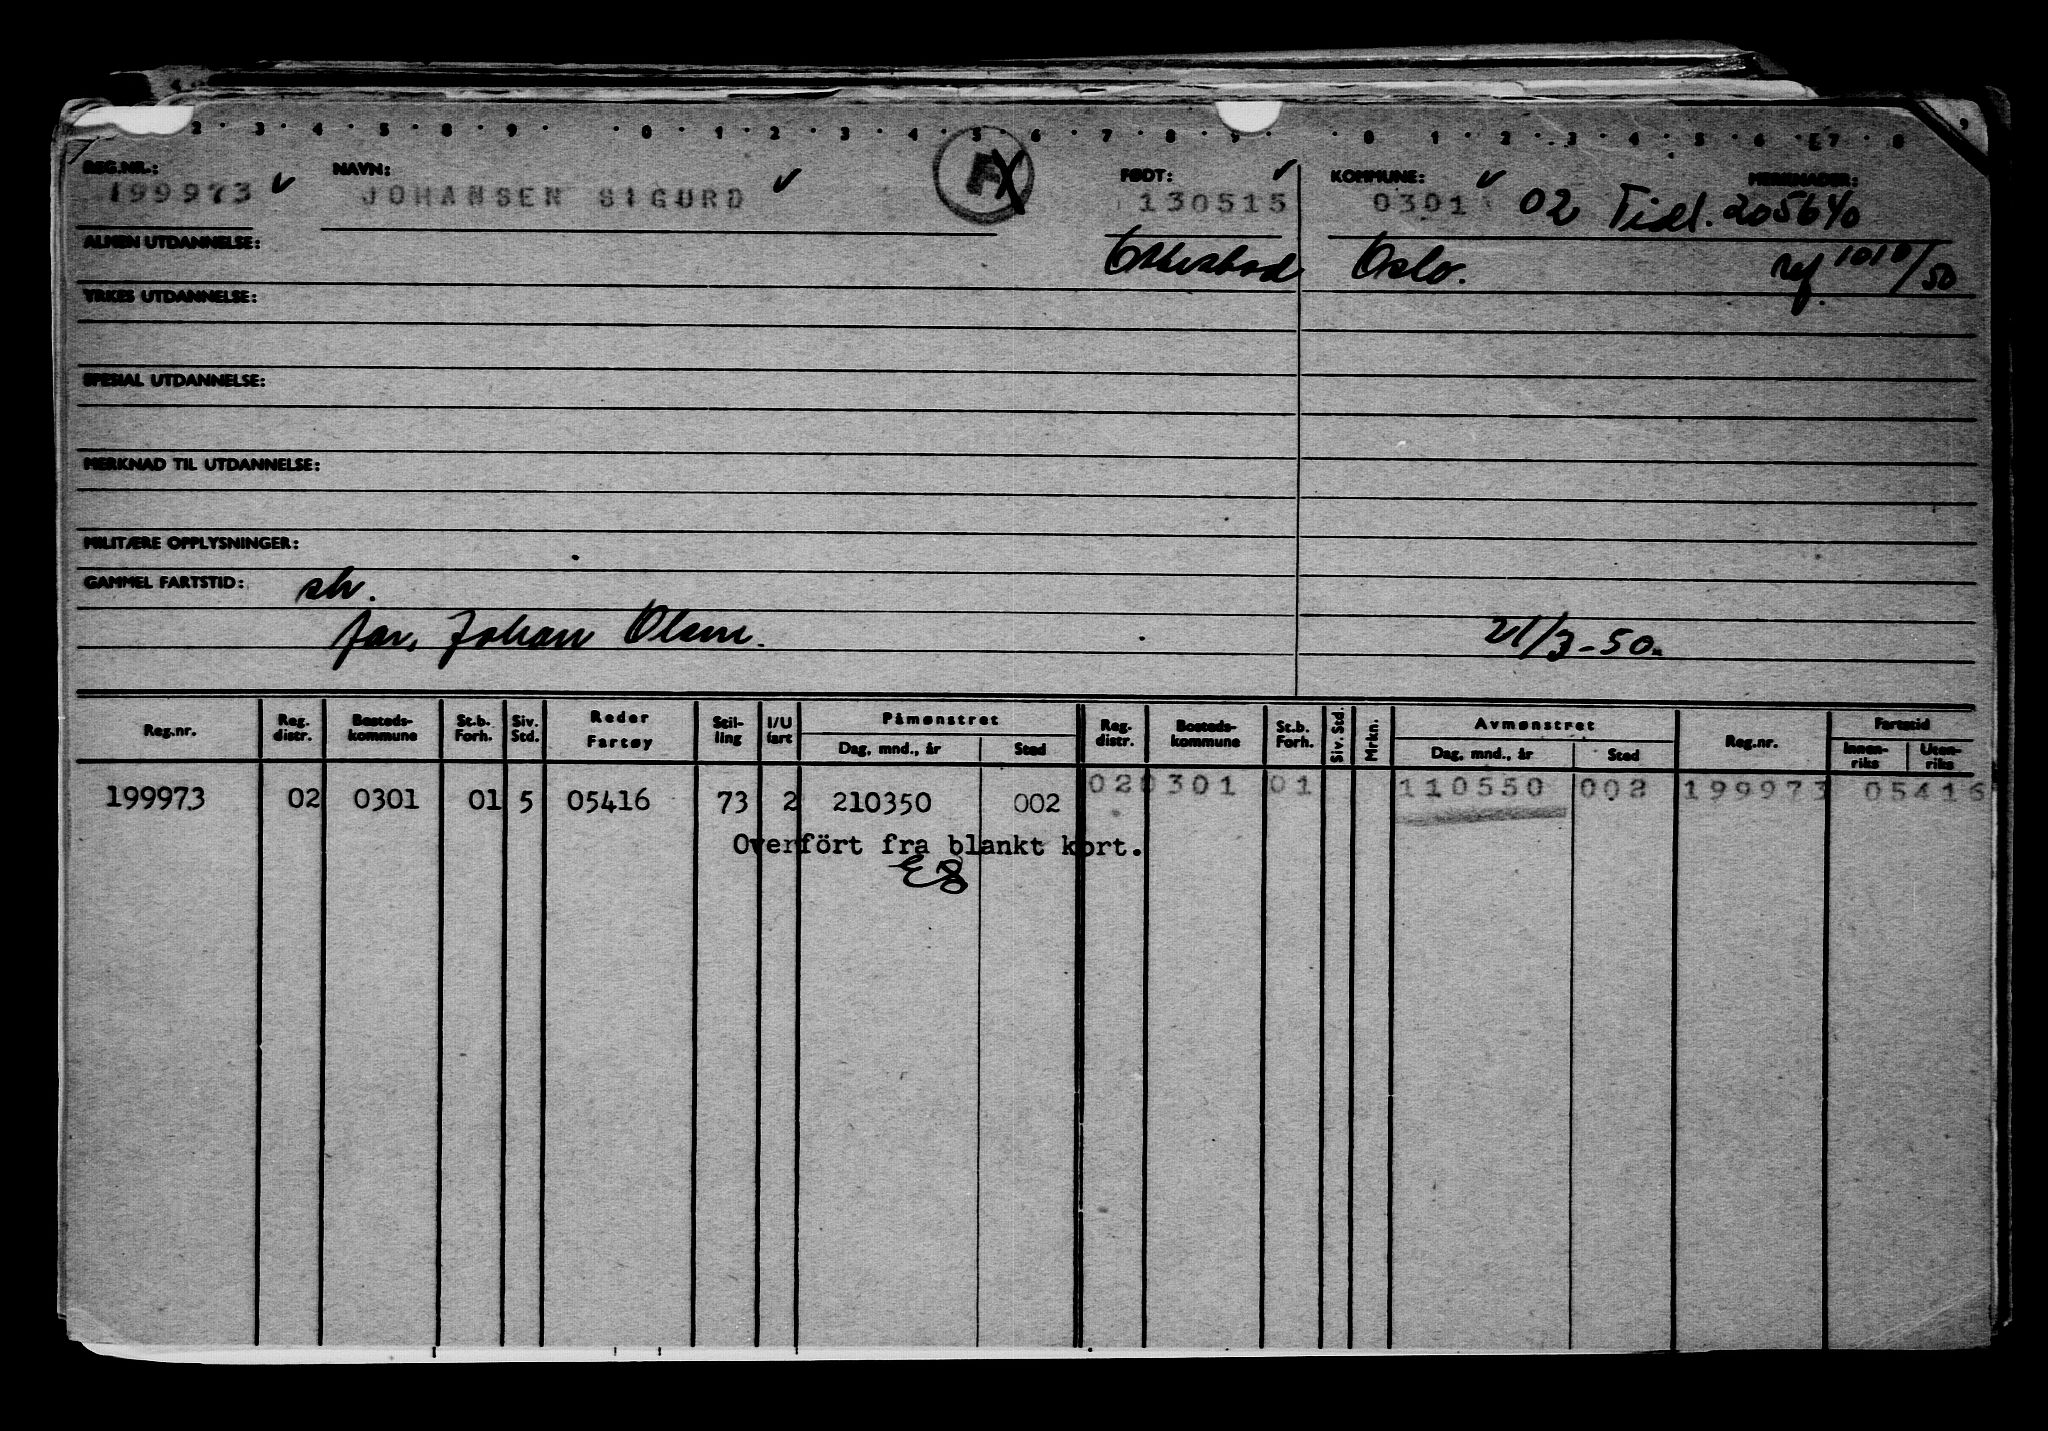 2 · 3 · 4 · 5 · 8 · 9 · · 0 · 1 · 2 · 3 · 4 · 5 · 6 · 7 · 8 · 9 · · 0 1 · 2 · 3 · 4 · 5 · 6 · 7 · 8 9
REG.NR.: NAVN: FØDT: KOMMUNE: MERKNADER:
199973 JOHANSEN SIGURD F 130515 0301 02 Tidl. 205640
ALMEN UTDANNELSE: Ottestad Oslo. ref. 1010/50
YRKES UTDANNELSE:
SPESIAL UTDANNELSE:
MERKNAD TIL UTDANNELSE:
MILITÆRE OPPLYSNINGER:
GAMMEL FARTSTID:
far, Johan Olsen. 21/3-50.
Reg.nr. Reg. distr. Bosteds-kommune St.b. Forh. Siv. Std. Reder Fartøy Stil-ling I/U fart Påmønstret Dag, mnd., år Sted Reg. distr. Bosteds-kommune St.b. Forh. Siv. Std. Mrkn. Avmønstret Dag, mnd., år Sted Reg.nr. Fartstid Innen-riks Uten-riks
199973 02 0301 01 5 05416 73 2 210350 002 02 0301 01 110550 002 199973 05416
Overfört fra blankt kort.